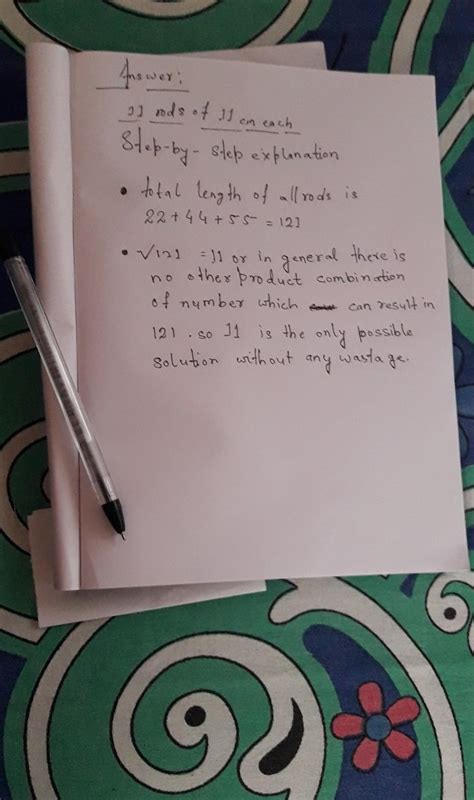 Answer:
11 rods of 11 cm each
Step-by-step explanation
• total length of all rods is
22+44+55 = 121
• √121 = 11 or in general there is
no other product combination
of number which can result in
121. so 11 is the only possible
solution without any wastage.